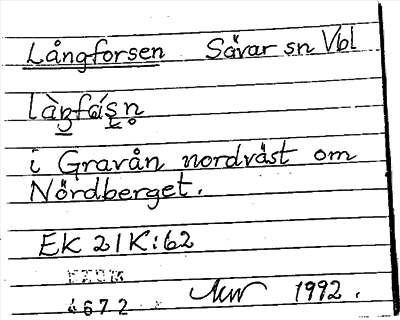 Långforsen Sävar sn Vbl
i Gravån nordväst om
Nördberget.
EK 21K:62
4672 1992.